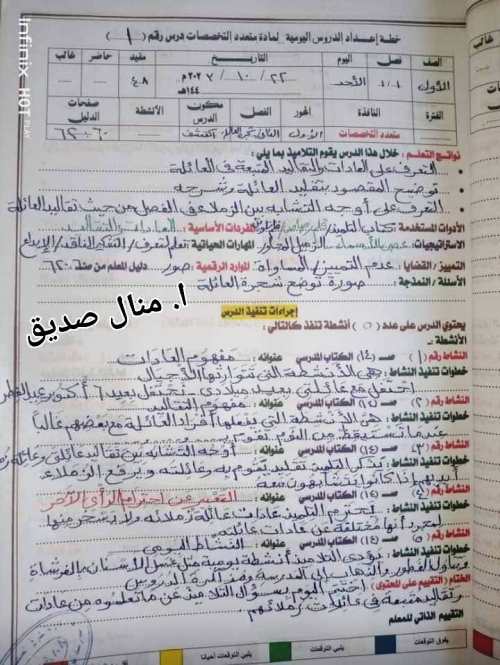 خطة إعداد الدروس اليومية لمادة متعدد التخصصات درس رقم (١)
الصف فصل اليوم التاريخ مقيد حاضر غائب
الأول ١/١ الأحد ٢٢/١٠/٢٠٢٣م
١٤٤هـ
الفترة النافذة المحور الفصل مكون الدرس الأنشطة صفحات الدليل
متعدد التخصصات الأول اكتشف ٦٠ : ٦٢
نواتج التعلم : خلال هذا الدرس يقوم التلاميذ بما يلي :
التعرف على العادات والتقاليد المتبعة فى العائلة
توضيح المقصود بتقليد العائلة وشرحه
التعرف على أوجه التشابه بين الزملاء فى الفصل من حيث تقاليد العائلة
الأدوات المستخدمة : كتاب التلميذ المفردات الأساسية : العادات والتقاليد
الاستراتيجيات : عصى الأسماء / الزميل المجاور المهارات الحياتية : تعلم لتعرف / التفكير الناقد / الإبداع
التمييز / القضايا : عدم التمييز / المساواة الموارد الرقمية : صور دليل المعلم من صفحة ٦٢:٦٠
الأسئلة / النمذجة : صورة توضح شجرة العائلة
ا. منال صديق
إجراءات تنفيذ الدرس
يحتوي الدرس على عدد (٥) أنشطة تنفذ كالتالي :
الأنشطة :
النشاط رقم (١) صـ (١٤) الكتاب المدرسي عنوانه : مفهوم العادات
خطوات تنفيذ النشاط : هى الأنشطة التى تتوارثها الأجيال
احتفل مع عائلتى بعيد ميلادى - نحتفل بعيد ٦ أكتوبر
النشاط رقم (٢) صـ الكتاب المدرسي عنوانه : مفهوم التقاليد
خطوات تنفيذ النشاط : هن الأنشطة التى يفعلها أفراد العائلة مع بعضهم غالباً
عندما تستيقظ من النوم تقوم
النشاط رقم (٣) صـ (١٥) الكتاب المدرسي عنوانه : أوجه التشابه بين تقاليد عائلتى وعائلة
خطوات تنفيذ النشاط : يذكر التلميذ تقليد تقوم به وعائلته ويرفع الزملاء
أيديهم إذا كانوا يتشابهون معه
النشاط رقم (٤) صـ (١٥) الكتاب المدرسي عنوانه : التعبير عن احترام الرأى الآخر
خطوات تنفيذ النشاط : احترم التلميذ عادات عائلة زملائه ولا يسخر منها
لمجرد أنها مختلفة عن عادات عائلته
النشاط رقم (٥) صـ الكتاب المدرسي عنوانه : النشاط اليومى
خطوات تنفيذ النشاط : يؤدى التلاميذ أنشطة يومية مثل غسل الأسنان بالفرشاة
وتناول الفطور والذهاب إلى المدرسة ومذاكرة الدروس
الختام (التقييم على المحتوى) اختتم اليوم بسؤال التلاميذ عن ما تعلموه من عادات
وتقاليد متبعة فى عائلات زملائهم
التقييم الذاتي للمعلم
يفوق التوقعات يلبي التوقعات يلبي التوقعات أحيانا
Infinix HOT
PLAY